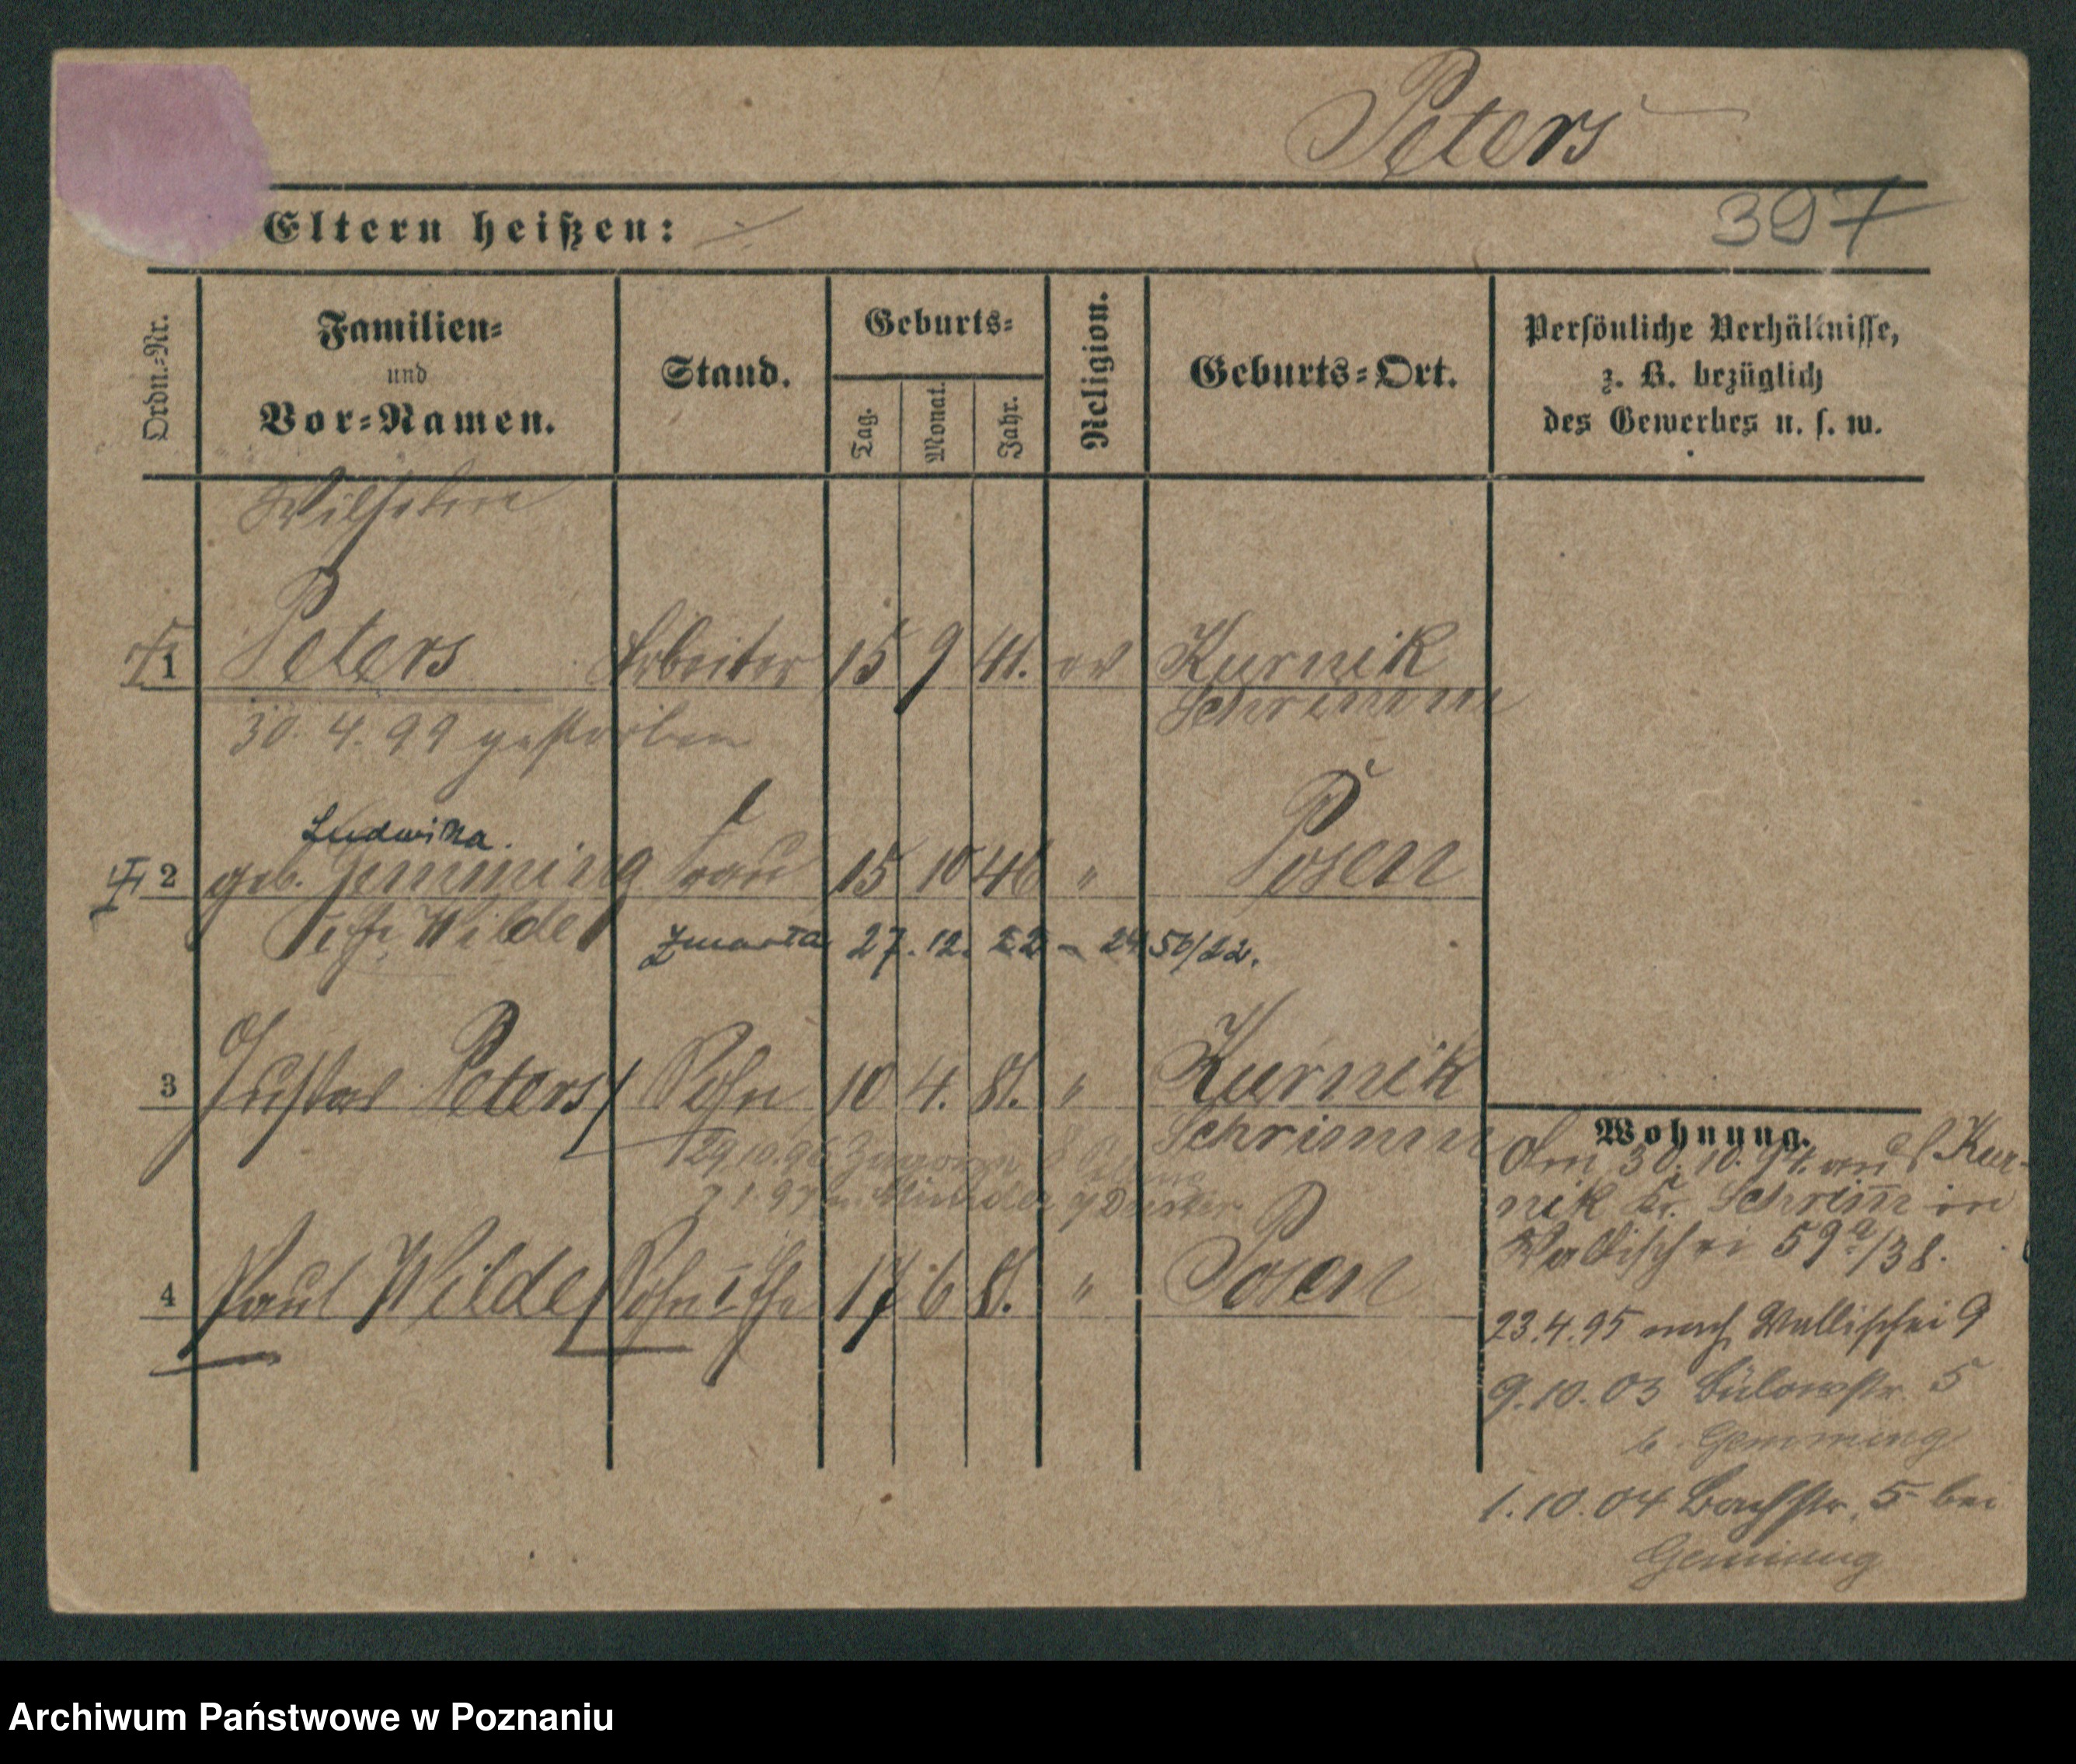 Peters
397
Eltern heißen: ÷
Ordn.-Nr.
Familien-
und
Vor-Namen.
Stand.
Geburts-
Tag.
Monat.
Jahr.
Religion.
Geburts-Ort.
Persönliche Verhältnisse,
z. B. bezüglich
des Gewerbes u. s. w.
Wilhelm
1 Peters Arbeiter 15 9 41. ev Kurnik
Schrimm
30. 4. 99 gestorben
Ludwika.
2 geb. Gemming Frau 15 10 46 " Posen
Wilde zmarła 27. 12. 22 - 2450/22.
3 Gustav Peters Sohn 10 4. 81. " Kurnik
Schrimm
29.10.96
7.1.97
4 Paul Wilde Sohn I Ehe 17 6 81. " Posen
Wohnung.
Am 30. 10. 94. aus Kur-
nik Kr. Schrimm in
Wallischei 59a/38.
23.4.95 nach Wallischei 9
9.10.03 Bülowstr. 5
b. Gemming
1.10.04 Bachstr. 5 bei
Gemming
Archiwum Państwowe w Poznaniu